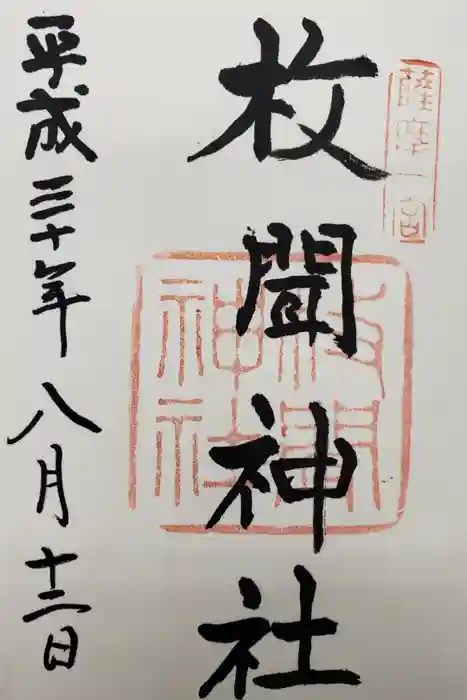 薩摩一宮
枚聞神社
枚聞
神社
平成三十年八月十三日